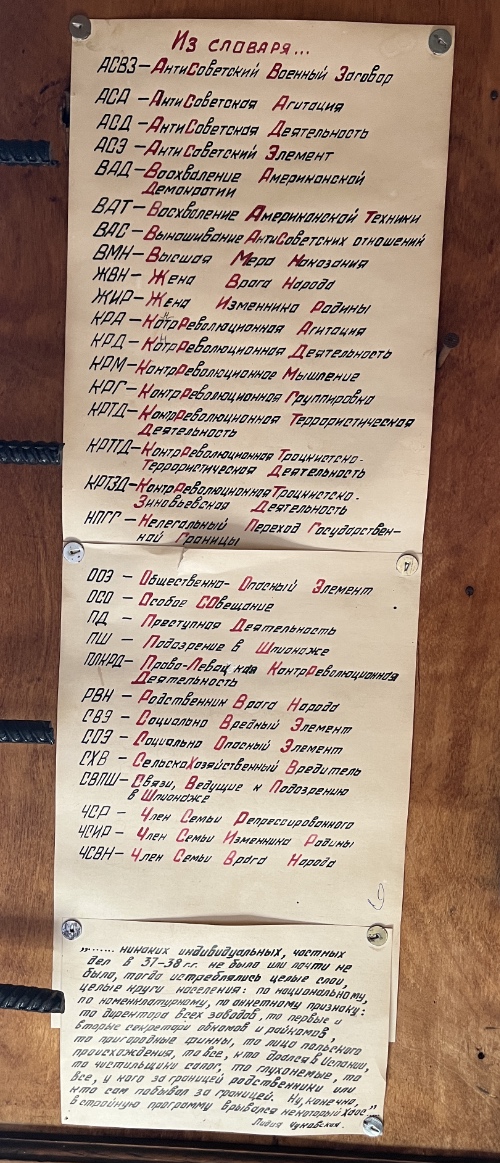 Из словаря...
АСВЗ – АнтиСоветский Военный Заговор
АСА – АнтиСоветская Агитация
АСД – АнтиСоветская Деятельность
АСЭ – АнтиСоветский Элемент
ВАД – Восхваление Американской
Демократии
ВАТ – Восхваление Американской Техники
ВАС – Вынашивание АнтиСоветских отношений
ВМН – Высшая Мера Наказания
ЖВН – Жена Врага Народа
ЖИР – Жена Изменника Родины
КРА – КонтрРеволюционная Агитация
КРД – КонтрРеволюционная Деятельность
КРМ – КонтрРеволюционное Мышление
КРГ – КонтрРеволюционная Группировка
КРТД – КонтрРеволюционная Террористическая
Деятельность
КРТТД – КонтрРеволюционная Троцкистско-
Террористическая Деятельность
КРТЗД – КонтрРеволюционная Троцкистско-
Зиновьевская Деятельность
НПГГ – Нелегальный Переход Государствен-
ной Границы
ООЭ – Общественно-Опасный Элемент
ОСО – Особое СОвещание
ПД – Преступная Деятельность
ПШ – Подозрение в Шпионаже
ПЛКРД – Право-Левацкая КонтрРеволюционная
Деятельность
РВН – Родственник Врага Народа
СВЭ – Социально Вредный Элемент
СОЭ – Социально Опасный Элемент
СХВ – СельскоХозяйственный Вредитель
СВПШ – Связи, Ведущие к Подозрению
в Шпионаже
ЧСР – Член Семьи Репрессированного
ЧСИР – Член Семьи Изменника Родины
ЧСВН – Член Семьи Врага Народа
„....... никаких индивидуальных, частных
дел в 37–38 г.г. не было или почти не
было, тогда истреблялись целые слои,
целые круги населения: по национальному,
по номенклатурному, по анкетному признаку:
то директора всех заводов, то первые и
вторые секретари обкомов и райкомов,
то пригородные финны, то лица польского
происхождения, то все, кто дрался в Испании,
то чистильщики сапог, то глухонемые, то
все, у кого за границей родственники или
кто сам побывал за границей. Ну, конечно,
в стройную программу врывался некоторый хаос"
Лидия Чуковская.